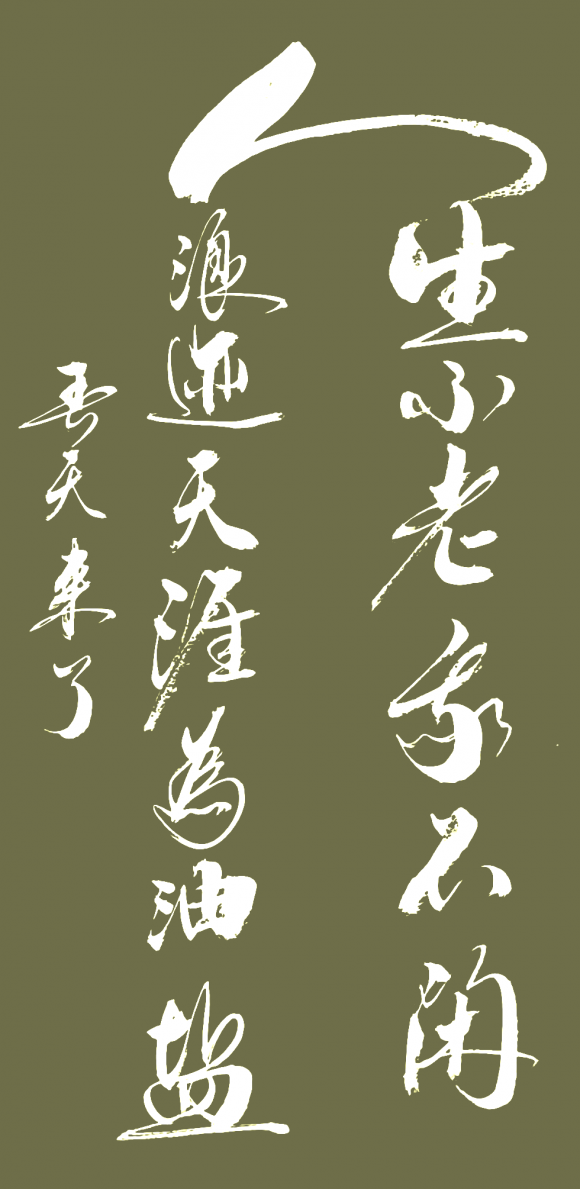 人生不老我不闲
浪迹天涯為油盐
春天来了